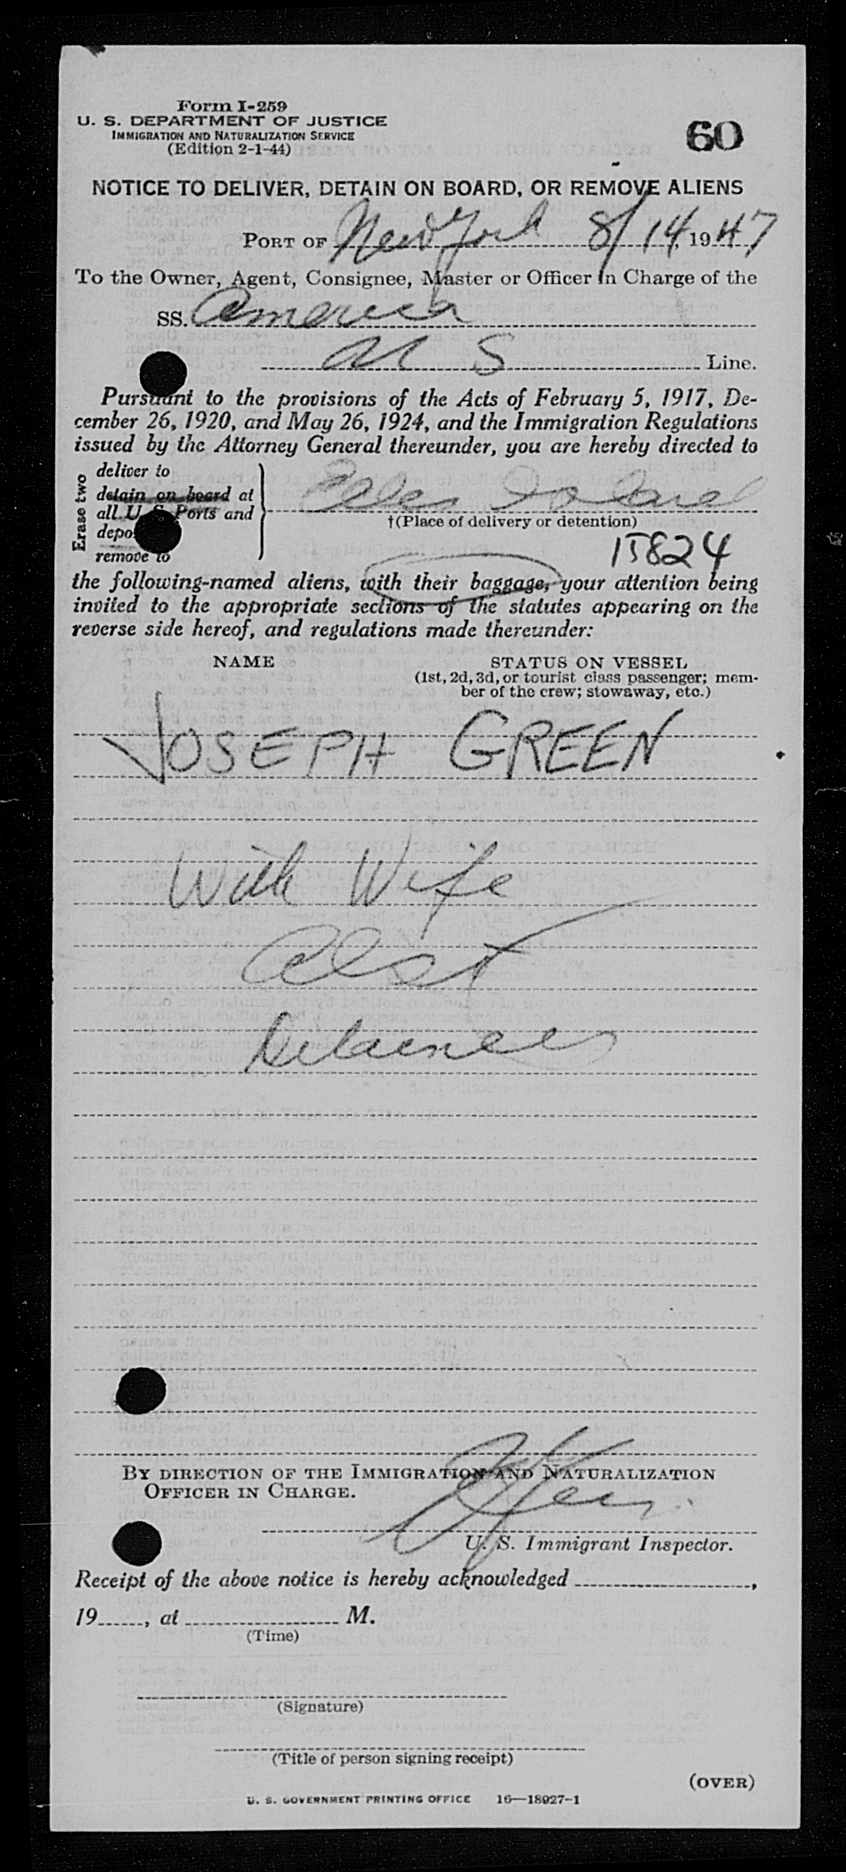 Form I-259
U. S. DEPARTMENT OF JUSTICE
IMMIGRATION AND NATURALIZATION SERVICE
(Edition 2-1-44)
60
NOTICE TO DELIVER, DETAIN ON BOARD, OR REMOVE ALIENS
PORT OF New York 8/14, 1947
To the Owner, Agent, Consignee, Master or Officer in Charge of the
SS. America
U S Line.
Pursuant to the provisions of the Acts of February 5, 1917, De-
cember 26, 1920, and May 26, 1924, and the Immigration Regulations
issued by the Attorney General thereunder, you are hereby directed to
Erase two
deliver to
detain on board at
all U S Ports and
depo
remove to
Ellis Island
†(Place of delivery or detention)
15824
the following-named aliens, with their baggage, your attention being
invited to the appropriate sections of the statutes appearing on the
reverse side hereof, and regulations made thereunder:
NAME
STATUS ON VESSEL
(1st, 2d, 3d, or tourist class passenger; mem-
ber of the crew; stowaway, etc.)
JOSEPH GREEN
With Wife
Detainees
BY DIRECTION OF THE IMMIGRATION AND NATURALIZATION
OFFICER IN CHARGE.
U. S. Immigrant Inspector.
Receipt of the above notice is hereby acknowledged ,
19 , at M.
(Time)
(Signature)
(Title of person signing receipt)
(OVER)
U. S. GOVERNMENT PRINTING OFFICE 16—18927-1